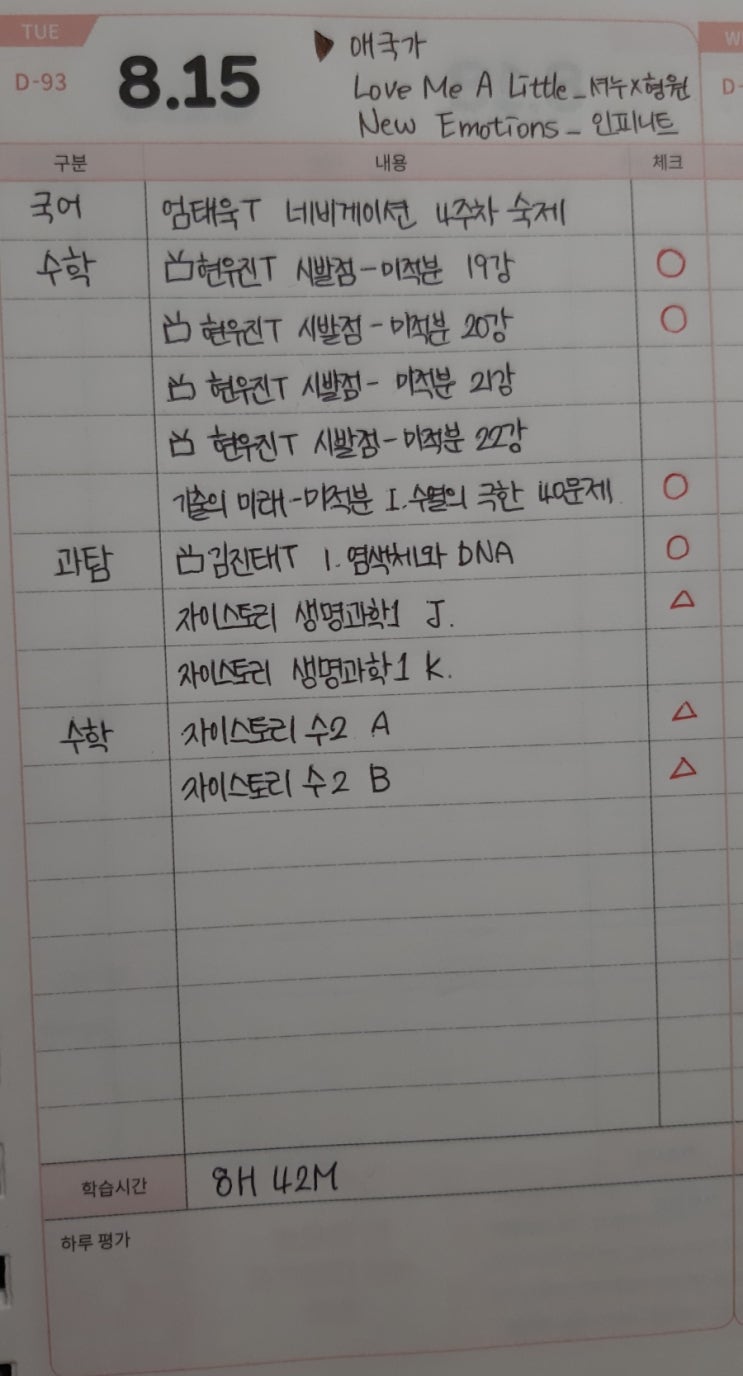 TUE
D-93 8.15
애국가
Love Me A Little_셔누X형원
New Emotions_인피니트
W
D-
구분 내용 체크
국어 엄태욱T 네비게이션 4주차 숙제
수학 현우진T 시발점-미적분 19강 ○
현우진T 시발점-미적분 20강 ○
현우진T 시발점- 미적분 21강
현우진T 시발점-미적분 22강
기술의 미래-미적분 I.수열의 극한 40문제 ○
과탐 김진태T 1.염색체와 DNA ○
자이스토리 생명과학1 J. △
자이스토리 생명과학1 K.
수학 자이스토리 수2 A △
자이스토리 수2 B △
학습시간 8H 42M
하루 평가